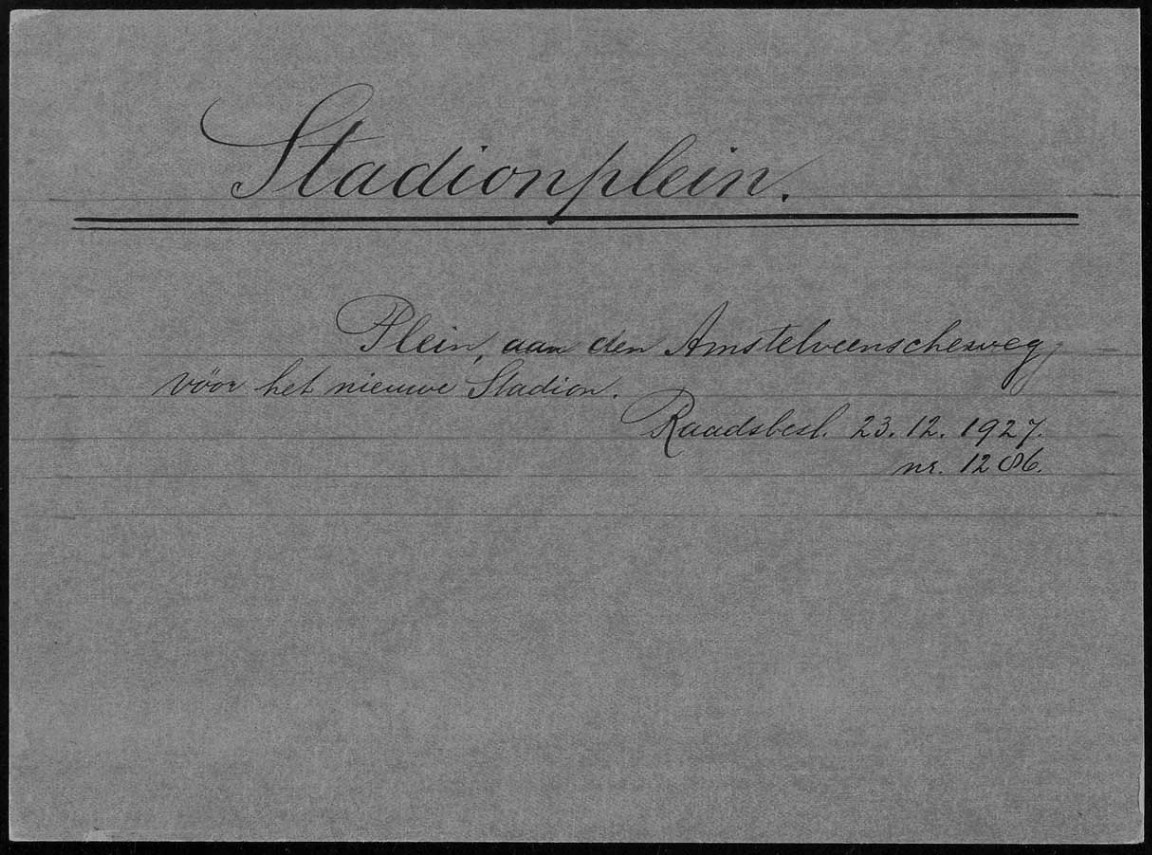 Stadionplein.
Plein, aan den Amstelveenscheweg,
vóór het nieuwe Stadion.
Raadsbesl. 23.12.1927.
nr. 1286.